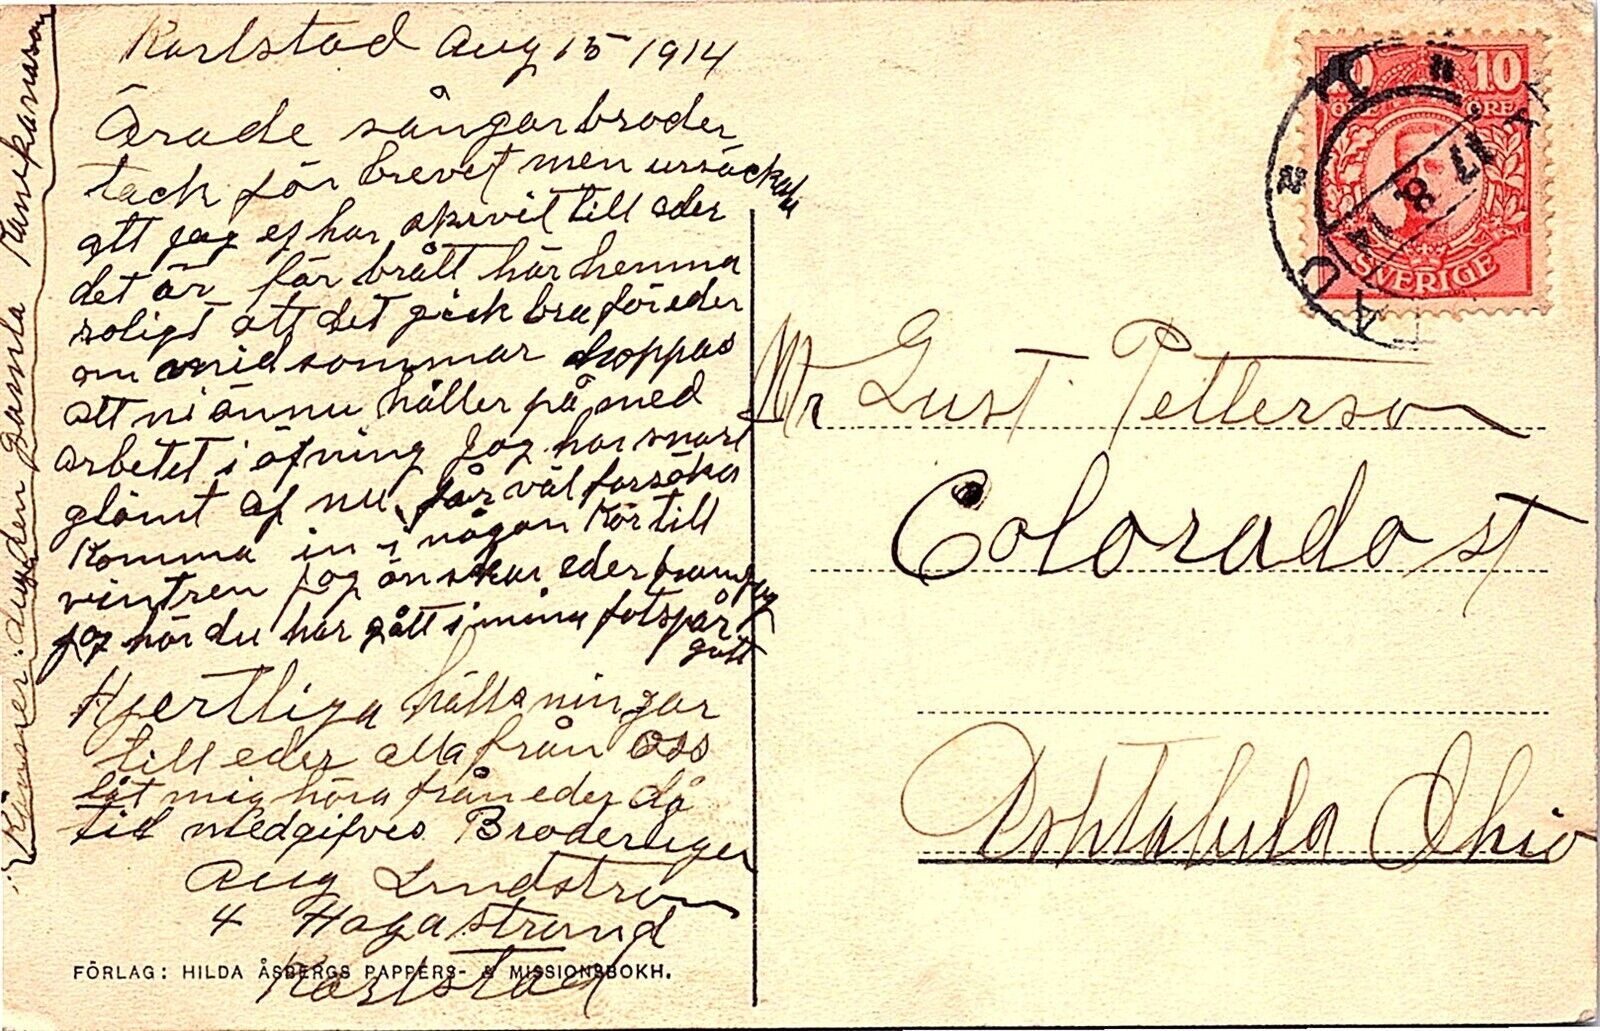 Karlstad Aug 15 1914
Ärade sångarbroder
tack för brevet men ursäckta
att jag ej har skrvit till eder
det är får brått här hemma
roligt att det gick bra för eder
om midsommar hoppas
att ni ännu håller på med
arbetet i öfning Jag har snart
glömt af nu får väl försöka
komma in i någon Kör till
vintren Jag önskar eder framgang
Jag hör du har gått i mina fotspår
gott
Hjertliga hällsningar
till eder alla från oss
låt mig höra från eder då
tid medgifves Broderligen
Aug Lundstrom
4 Hagastrand
Karlstad
Känner den gamla
FÖRLAG: HILDA ÅSBERGS PAPPERS- & MISSIONSBOKH.
10 10
ÖRE ÖRE
SVERIGE
17 8 14
Mr Gust Petterson
Colorado st
Ashtabula Ohio